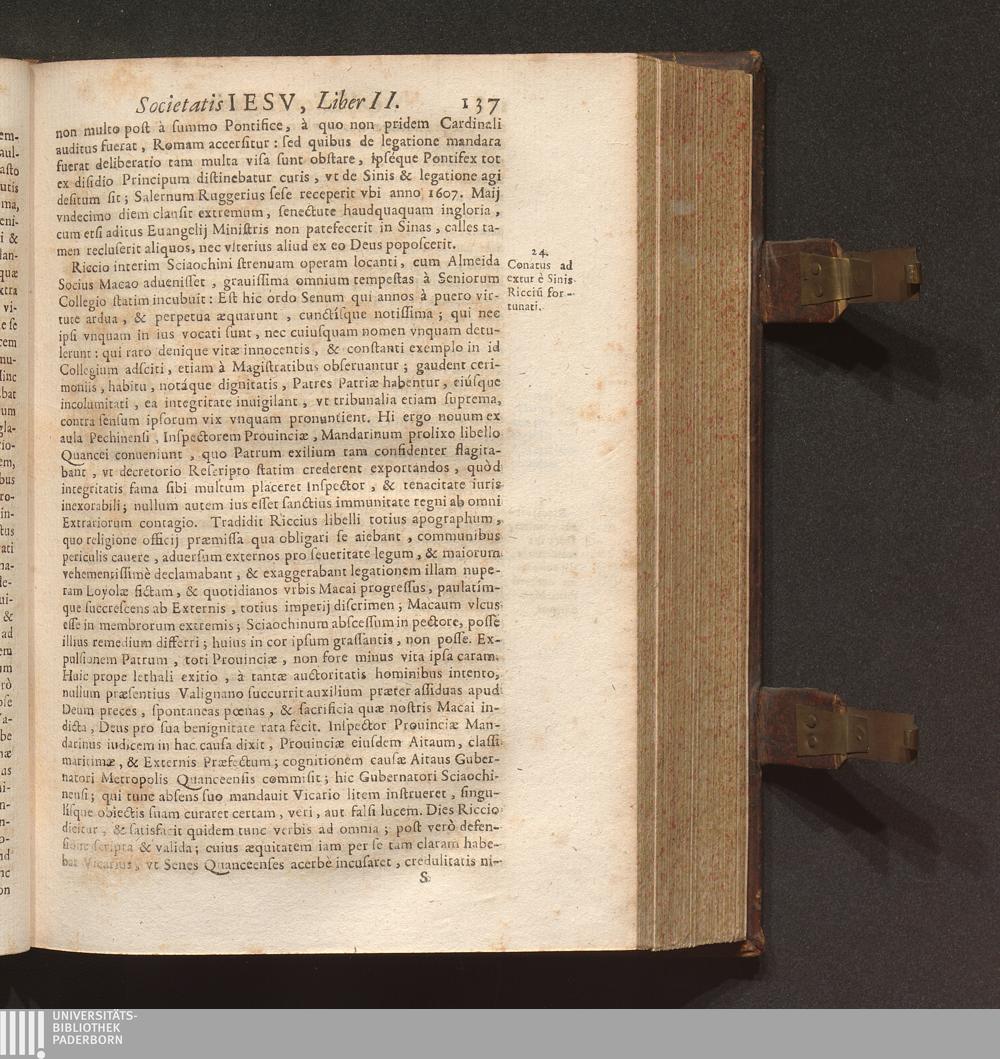 Societatis IESV, Liber II. 137
non multo post à summo Pontifice, à quo non pridem Cardinali
auditus fuerat, Romam accersitur: sed quibus de legatione mandara
fuerat deliberatio tam multa visa sunt obstare, ipséque Pontifex tot
ex disidio Principum distinebatur curis, vt de Sinis & legatione agi
desitum sit; Salernum Ruggerius sese receperit vbi anno 1607. Maij
vndecimo diem clausit extremum, senectute haudquaquam ingloria,
cum etsi aditus Euangelij Ministris non patefecerit in Sinas, calles ta-
men recluserit aliquos, nec vlterius aliud ex eo Deus poposcerit.
Riccio interim Sciaochini strenuam operam locanti, cum Almeida
Socius Macao aduenisset, grauissima omnium tempestas à Seniorum
Collegio statim incubuit: Est hic ordo Senum qui annos à puero vir-
tute ardua, & perpetua æquarunt, cunctísque notissima; qui nec
ipsi vnquam in ius vocati sunt, nec cuiusquam nomen vnquam detu-
lerunt: qui raro denique vitæ innocentis, & constanti exemplo in id
Collegium adsciti, etiam à Magistratibus obseruantur; gaudent ceri-
moniis, habitu, notáque dignitatis, Patres Patriæ habentur, eiúsque
incolumitati, ea integritate inuigilant, vt tribunalia etiam suprema,
contra sensum ipsorum vix vnquam pronuntient. Hi ergo nouum ex
aula Pechinensi, Inspectorem Prouinciæ, Mandarinum prolixo libello
Quancei conueniunt, quo Patrum exilium tam confidenter flagita-
bant, vt decretorio Rescripto statim crederent exportandos, quòd
integritatis fama sibi multum placeret Inspector, & tenacitate iuris
inexorabili; nullum autem ius esset sanctius immunitate regni ab omni
Extrariorum contagio. Tradidit Riccius libelli totius apographum,
quo religione officij præmissa qua obligari se aiebant, communibus
periculis cauere, aduersum externos pro seueritate legum, & maiorum
vehementissimè declamabant, & exaggerabant legationem illam nupe-
ram Loyolæ fictam, & quotidianos vrbis Macai progressus, paulatim-
que succrescens ab Externis, totius imperij discrimen; Macaum vlcus
esse in membrorum extremis; Sciaochinum abscessum in pectore, posse
illius remedium differri; huius in cor ipsum grassantis, non posse. Ex-
pulsionem Patrum, toti Prouinciæ, non fore minus vita ipsa caram.
Huic prope lethali exitio, à tantæ auctoritatis hominibus intento,
nullum præsentius Valignano succurrit auxilium præter assiduas apud
Deum preces, spontaneas pœnas, & sacrificia quæ nostris Macai in-
dicta, Deus pro sua benignitate rata fecit. Inspector Prouinciæ Man-
darinus iudicem in hac causa dixit, Prouinciæ eiusdem Aitaum, classi
maritimæ, & Externis Præfectum; cognitionem causæ Aitaus Guber-
natori Metropolis Quanceensis commisit; hic Gubernatori Sciaochi-
nensi; qui tunc absens suo mandauit Vicario litem instrueret, singu-
lisque obiectis suam curaret certam, veri, aut falsi lucem. Dies Riccio
dicitur, & satisfacit quidem tunc verbis ad omnia; post verò defen-
sione scripta & valida; cuius æquitatem iam per se tam claram habe-
bat Vicarius, vt Senes Quanceenses acerbè incusaret, credulitatis ni-
S
24.
Conatus ad
extur è Sinis
Ricciū for-
tunati.
UNIVERSITÄTS-
BIBLIOTHEK
PADERBORN